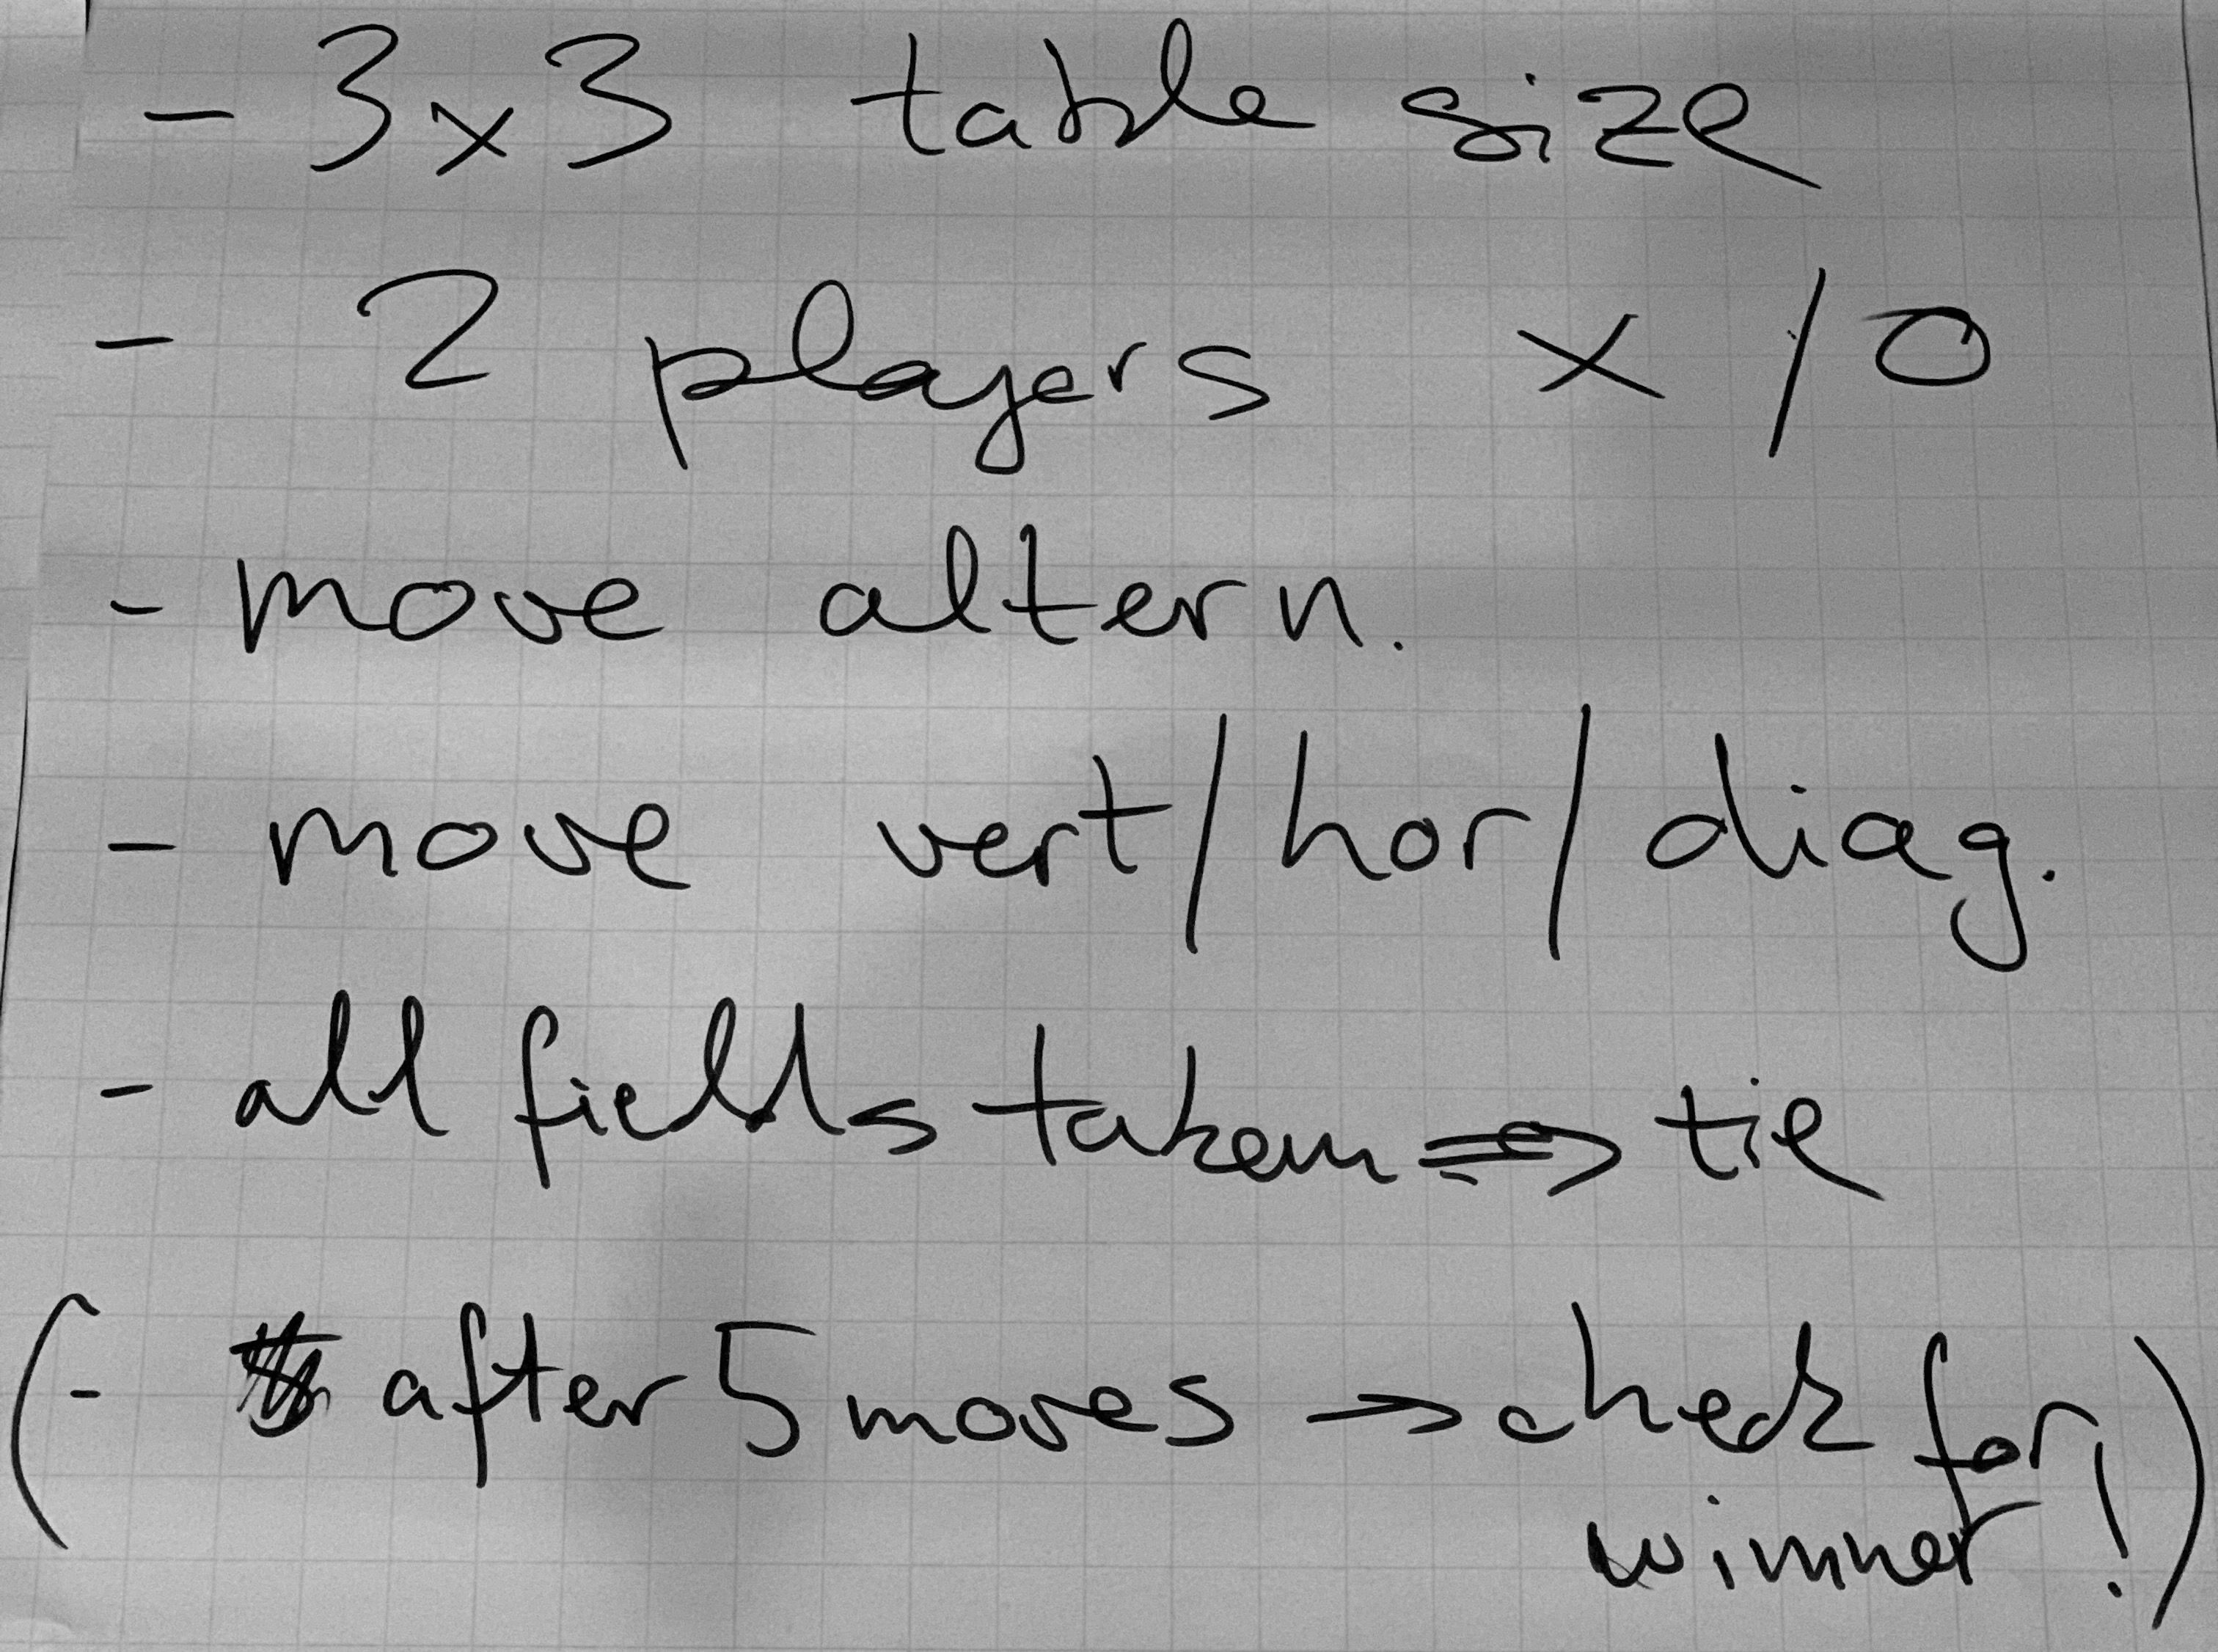 - 3x3 table size
- 2 players x/0
- move altern.
- move vert/hor/diag.
- all fields taken => tie
(- after 5 moves → check for
winner!)